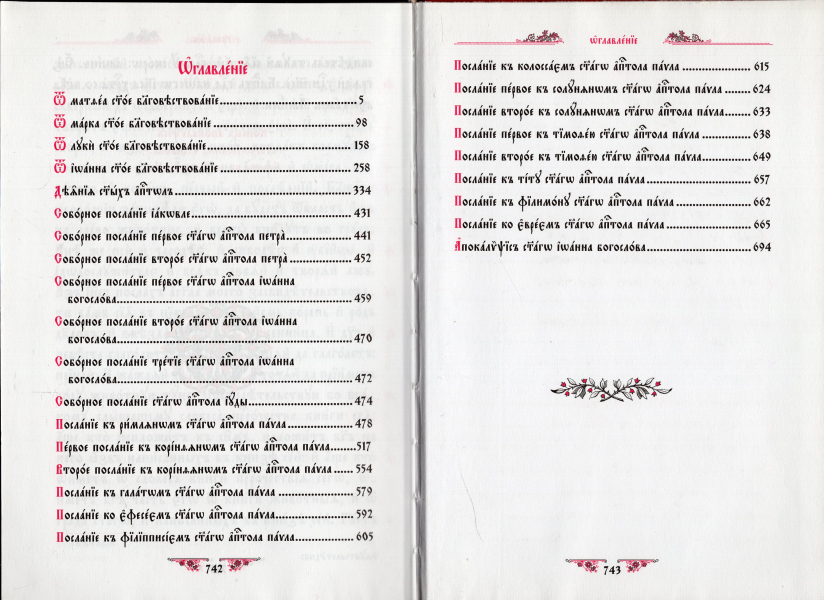 Ѡ҆главле́нїе
Ѿ матѳеа ст҃о́е бл҃говѣствова́нїе 5
Ѿ ма́рка ст҃о́е бл҃говѣствова́нїе 98
Ѿ лꙋкѝ ст҃о́е бл҃говѣствова́нїе 158
Ѿ і҆ѡа́нна ст҃о́е бл҃говѣствова́нїе 258
Дѣѧ҄нїѧ ст҃ы́хъ а҆пⷭ҇тѡлъ 334
Собо́рное посла́нїе і҆а́кѡвле 431
Собо́рное посла́нїе пе́рвое ст҃а́гѡ а҆пⷭ҇тола петра̀ 441
Собо́рное посла́нїе второ́е ст҃а́гѡ а҆пⷭ҇тола петра̀ 452
Собо́рное посла́нїе пе́рвое ст҃а́гѡ а҆пⷭ҇тола і҆ѡа́нна
богосло́ва 459
Собо́рное посла́нїе второ́е ст҃а́гѡ а҆пⷭ҇тола і҆ѡа́нна
богосло́ва 470
Собо́рное посла́нїе тре́тїе ст҃а́гѡ а҆пⷭ҇тола і҆ѡа́нна
богосло́ва 472
Собо́рное посла́нїе ст҃а́гѡ а҆пⷭ҇тола і҆ꙋ́ды 474
Посла́нїе къ ри́млѧнѡмъ ст҃а́гѡ а҆пⷭ҇тола па́ѵла 478
Пе́рвое посла́нїе къ корі́нѳѧнѡмъ ст҃а́гѡ а҆пⷭ҇тола па́ѵла 517
Второ́е посла́нїе къ корі́нѳѧнѡмъ ст҃а́гѡ а҆пⷭ҇тола па́ѵла 554
Посла́нїе къ гала́тѡмъ ст҃а́гѡ а҆пⷭ҇тола па́ѵла 579
Посла́нїе ко є҆фесе́ємъ ст҃а́гѡ а҆пⷭ҇тола па́ѵла 592
Посла́нїе къ фїлїпписі́ємъ ст҃а́гѡ а҆пⷭ҇тола па́ѵла 605
742
ѡ҆главле́нїе
Посла́нїе къ колосса́ємъ ст҃а́гѡ а҆пⷭ҇тола па́ѵла 615
Посла́нїе пе́рвое къ солꙋ́нѧнѡмъ ст҃а́гѡ а҆пⷭ҇тола па́ѵла 624
Посла́нїе второ́е къ солꙋ́нѧнѡмъ ст҃а́гѡ а҆пⷭ҇тола па́ѵла 633
Посла́нїе пе́рвое къ тїмоѳе́ю ст҃а́гѡ а҆пⷭ҇тола па́ѵла 638
Посла́нїе второ́е къ тїмоѳе́ю ст҃а́гѡ а҆пⷭ҇тола па́ѵла 649
Посла́нїе къ ті́тꙋ ст҃а́гѡ а҆пⷭ҇тола па́ѵла 657
Посла́нїе къ фїлимо́нꙋ ст҃а́гѡ а҆пⷭ҇тола па́ѵла 662
Посла́нїе ко є҆вре́ємъ ст҃а́гѡ а҆пⷭ҇тола па́ѵла 665
А҆пока́лѷѱїсъ ст҃а́гѡ і҆ѡа́нна богосло́ва 694
743